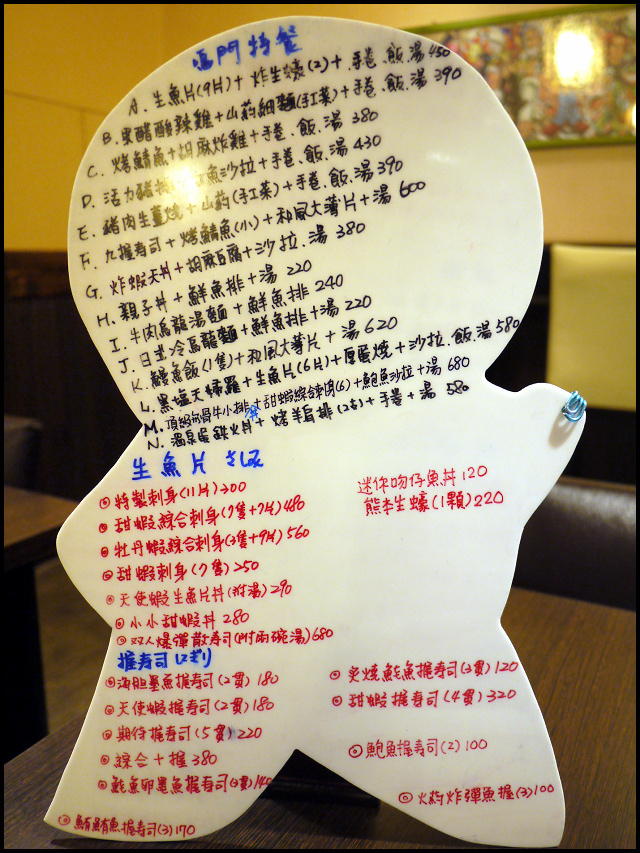 鳴門特餐
A. 生魚片(9片)+炸生蠔(2)+手卷.飯.湯 450
B. 果醋酸辣雞+山藥細麵(手工菜)+手卷.飯.湯 390
C. 烤鯖魚+胡麻炸雞+手卷.飯.湯 380
D. 活力豬 魚沙拉+手卷.飯.湯 430
E. 豬肉生薑燒+山藥(手工菜)+手卷.飯.湯 390
F. 九握寿司+烤鯖魚(小)+和風大薄片+湯 600
G. 炸蝦天丼+胡麻豆腐+沙拉.湯 380
H. 親子丼+鮮魚排+湯 220
I. 牛肉烏龍湯麵+鮮魚排 240
J. 日式冷烏龍麵+鮮魚排+湯 220
K. 鰻魚飯(1隻)+和風大薄片+湯 620
L. 黑塩天婦羅+生魚片(6片)+厚蛋燒+沙拉.飯.湯 580
M. 頂級 骨牛小排+甜蝦綜合刺身(6)+鮑魚沙拉+湯 680
N. 溫泉蛋鉄火丼+烤羊肩排(2支)+手卷+湯 580
生魚片 さしみ
◎特製刺身(11片)300
◎甜蝦綜合刺身(7隻+7片)480
◎牡丹蝦綜合刺身(3隻+9片)560
◎甜蝦刺身(7隻)250
◎天使蝦生魚片丼(附湯)290
◎小小甜蝦丼 280
◎双人爆彈散寿司(附兩碗湯)680
迷你吻仔魚丼 120
熊本生蠔(1顆)220
握寿司 にぎり
◎海胆墨魚握寿司(2貫)180
◎天使蝦握寿司(2貫)180
◎期待握寿司(5貫)220
◎綜合十握 380
◎鮭魚卵墨魚握寿司(3貫)140
◎鮪鮪魚握寿司(3)170
◎炙燒鮭魚握寿司(3貫)120
◎甜蝦握寿司(4貫)320
◎鮑魚握寿司(2)100
◎火藥炸彈魚握(3)100